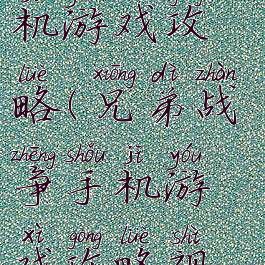 机游戏攻
lüè xiōng dì zhàn
略(兄弟战
zhēng shǒu jī yóu
争手机游
xì gōng lüè shì
戏攻略视